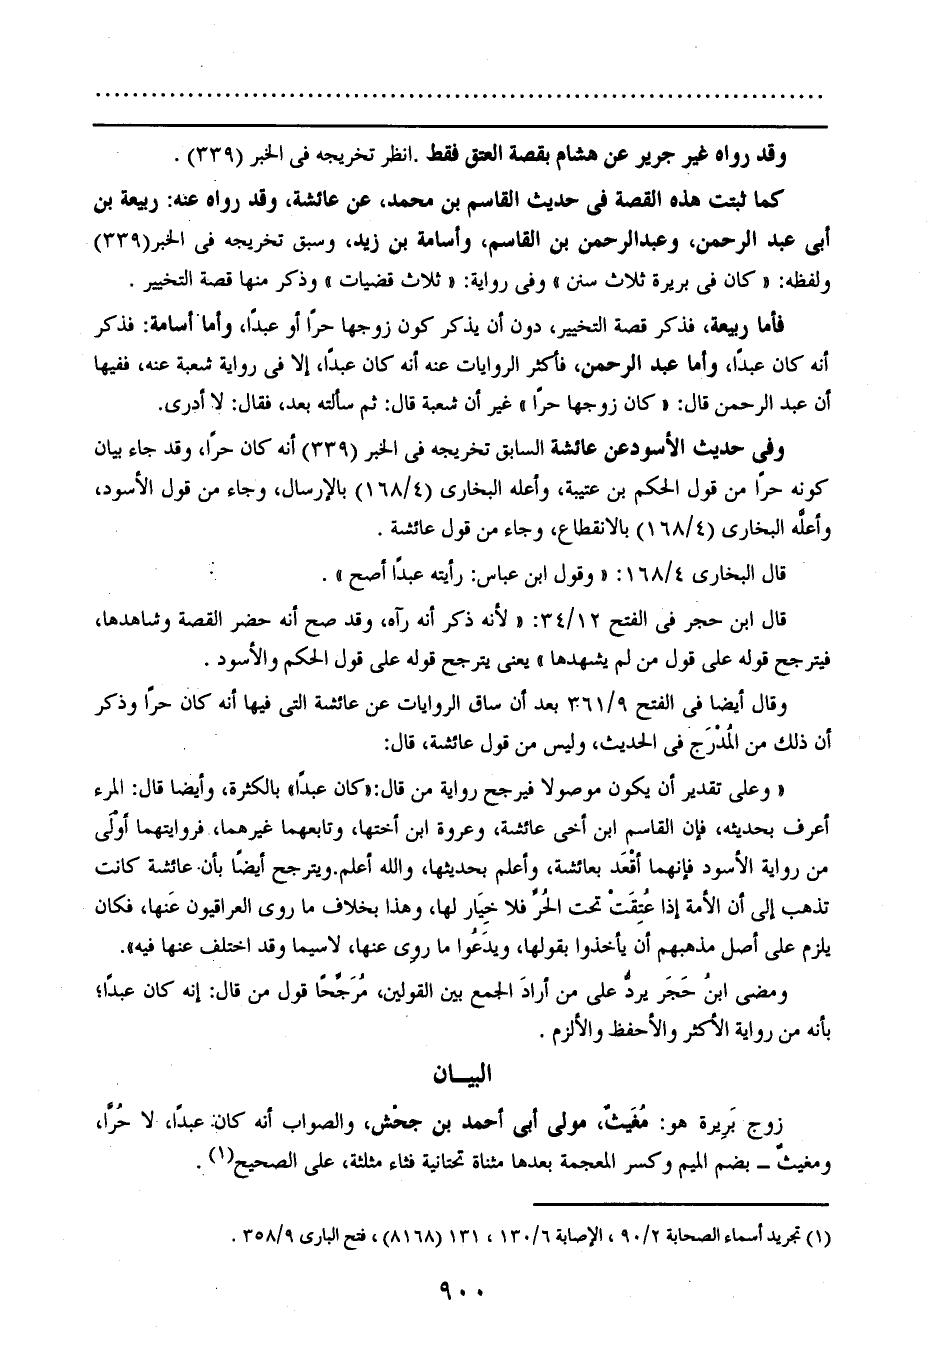 وقد رواه غير جرير عن هشام بقصة العتق فقط .انظر تخريجه فى الخبر (٣٣٩) .
كما ثبتت هذه القصة فى حديث القاسم بن محمد، عن عائشة، وقد رواه عنه: ربيعة بن
أبى عبد الرحمن، وعبدالرحمن بن القاسم، وأسامة بن زيد، وسبق تخريجه فى الخبر(٣٣٩)
ولفظه: « كان فى بريرة ثلاث سنن » وفى رواية: « ثلاث قضيات » وذكر منها قصة التخيير .
فأما ربيعة، فذكر قصة التخيير، دون أن يذكر كون زوجها حرًا أو عبدًا، وأما أسامة: فذكر
أنه كان عبدًا، وأما عبد الرحمن، فأكثر الروايات عنه أنه كان عبدًا، إلا فى رواية شعبة عنه، ففيها
أن عبد الرحمن قال: « كان زوجها حرًا » غير أن شعبة قال: ثم سألته بعد، فقال: لا أدرى.
وفى حديث الأسودعن عائشة السابق تخريجه فى الخبر (٣٣٩) أنه كان حرًا، وقد جاء بيان
كونه حرًا من قول الحكم بن عتيبة، وأعله البخارى (١٦٨/٤) بالإرسال، وجاء من قول الأسود،
وأعلَّه البخارى (١٦٨/٤) بالانقطاع، وجاء من قول عائشة .
قال البخارى ١٦٨/٤: « وقول ابن عباس: رأيته عبدًا أصح » .
قال ابن حجر فى الفتح ٣٤/١٢: « لأنه ذكر أنه رآه، وقد صح أنه حضر القصة وشاهدها،
فيترجح قوله على قول من لم يشهدها » يعنى يترجح قوله على قول الحكم والأسود .
وقال أيضا فى الفتح ٣٦١/٩ بعد أن ساق الروايات عن عائشة التى فيها أنه كان حرًا وذكر
أن ذلك من المُدْرَج فى الحديث، وليس من قول عائشة، قال:
« وعلى تقدير أن يكون موصولا فيرجح رواية من قال:«كان عبدًا» بالكثرة، وأيضا قال: المرء
أعرف بحديثه، فإن القاسم ابن أخى عائشة، وعروة ابن أختها، وتابعهما غيرهما، فروايتهما أوْلَى
من رواية الأسود فإنهما أقْعَد بعائشة، وأعلم بحديثها، والله أعلم.ويترجح أيضًا بأن عائشة كانت
تذهب إلى أن الأمة إذا عُتِقَتْ تحت الحُرِّ فلا خِيَار لها، وهذا بخلاف ما روى العراقيون عَنها، فكان
يلزم على أصل مذهبهم أن يأخذوا بقولها، ويدَعُوا ما روِى عنها، لاسيما وقد اختلف عنها فيه».
ومضى ابنُ حَجَر يردُّ على من أرادَ الجمع بين القولين، مُرَجِّحًا قول من قال: إنه كان عبدًا؛
بأنه من رواية الأكثر والأحفظ والألزم .
البيـــان
زوج بَرِيرة هو: مُغِيثٌ، مولى أبى أحمد بن جحْش، والصواب أنه كان عبدًا، لا حُرًّا،
ومغيثٌ ــ بضم الميم وكسر المعجمة بعدها مثناة تحتانية فثاء مثلثة، على الصحيح(١) .
(١) تجريد أسماء الصحابة ٩٠/٢ ، الإصابة ١٣٠/٦ ، ١٣١ (٨١٦٨) ، فتح البارى ٣٥٨/٩ .
٩٠٠